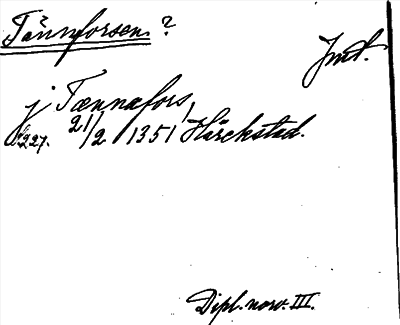 Tännforsen?
Jmt.
j Tænnafors,
s. 227. 21/2 1351, Härekstad.
Dipl. norv. III.